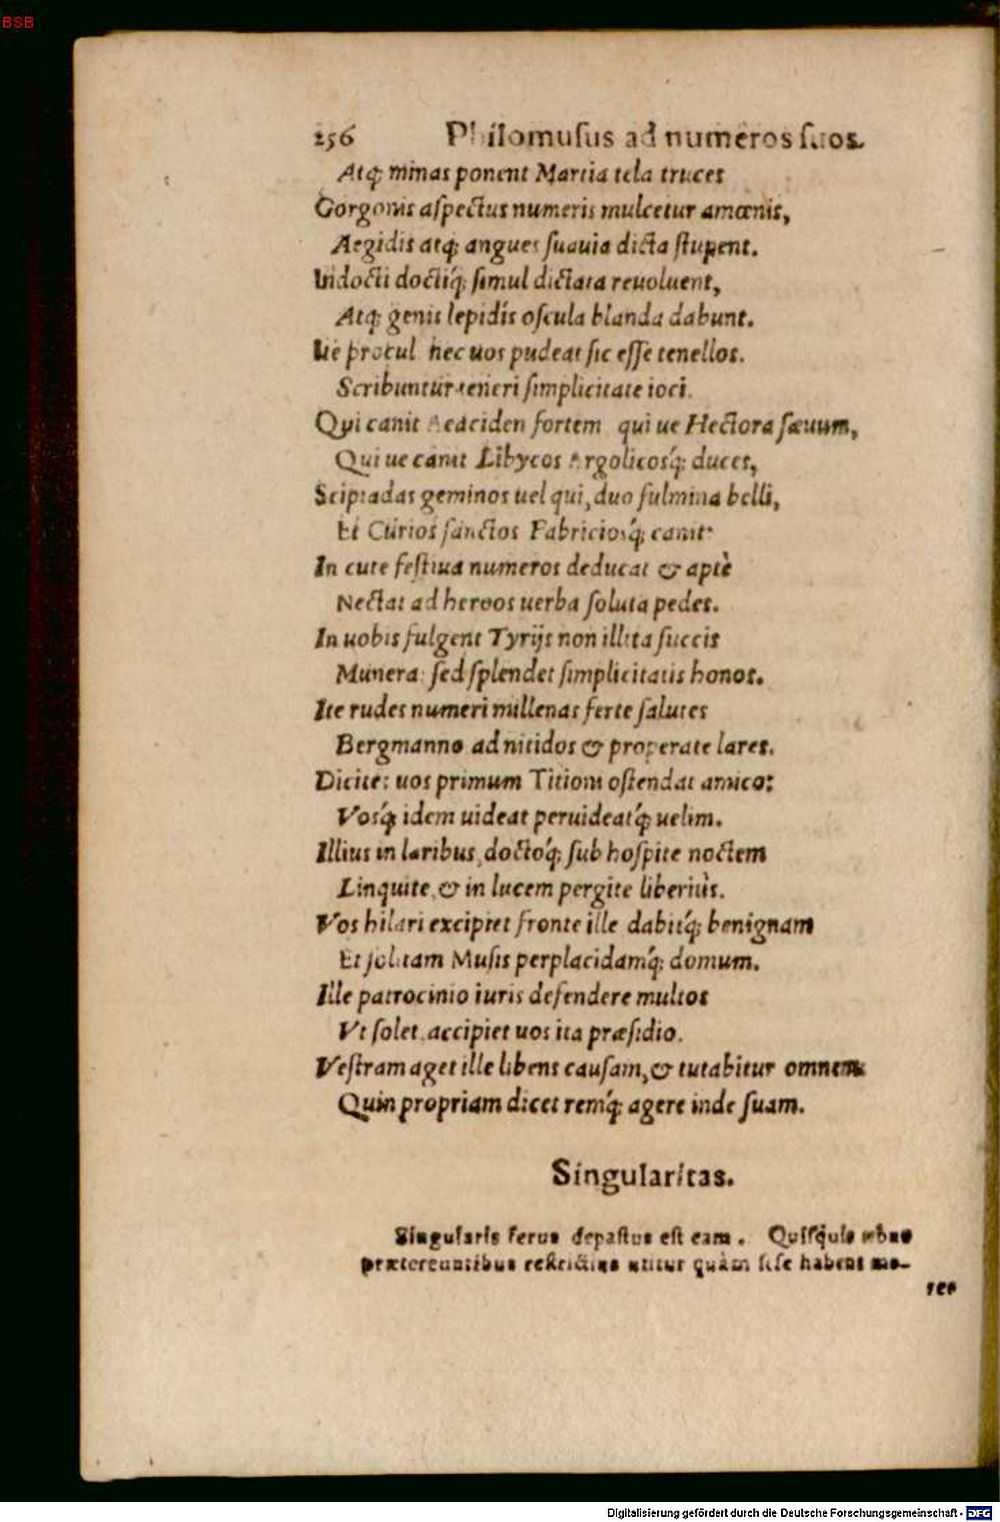 BSB
256 Philomuſus ad numeros ſuos.
Atq; minas ponent Martia tela truces
Gorgonis aſpectus numeris mulcetur amœnis,
Aegidis atq; angues ſuauia dicta ſtupent.
Indocti doctiq́; ſimul dictata reuoluent,
Atq; genis lepidis oſcula blanda dabunt.
Ite procul nec uos pudeat ſic eſſe tenellos.
Scribuntur teneri ſimplicitate ioci.
Qui canit Aeaciden fortem qui ue Hectora ſæuum,
Qui ue canit Libycos Argolicosq́; duces,
Scipiadas geminos uel qui, duo fulmina belli,
Et Curios ſanctos Fabriciosq́; canit
In cute feſtiua numeros deducat & aptè
Nectat ad heroos uerba ſoluta pedes.
In uobis fulgent Tyrijs non illita ſuccis
Munera: ſed ſplendet ſimplicitatis honos.
Ite rudes numeri millenas ferte ſalutes
Bergmanno ad nitidos & properate lares.
Dicite: uos primum Titioni oſtendat amico:
Vosq́; idem uideat peruideatq́; uelim.
Illius in laribus doctoq́; ſub hoſpite noctem
Linquite, & in lucem pergite liberiùs.
Vos hilari excipiet fronte ille dabitq́; benignam
Et ſolitam Muſis perplacidamq́; domum.
Ille patrocinio iuris defendere multos
Vt ſolet, accipiet uos ita præſidio.
Veſtram aget ille libens cauſam, & tutabitur omnem
Quin propriam dicet remq́; agere inde ſuam.
Singularitas.
Singularis ferus depaſtus eſt eam. Quiſquis rebus
prætereuntibus reſtrictius utitur quàm ſeſe habent mo-
res
Digitalisierung gefördert durch die Deutsche Forschungsgemeinschaft - DFG